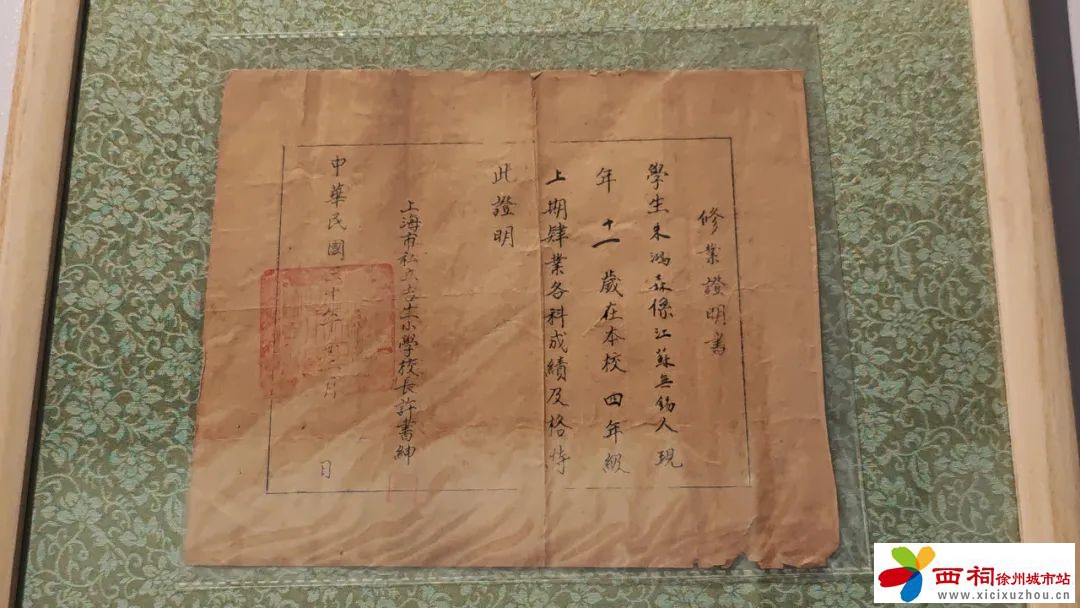 修業證明書
學生朱鴻森係江蘇無錫人現
年十一歲在本校四年級
上期肄業各科成績及格特
此證明
上海市私立吉生小學校長許書紳
中華民國三十 月 日
西祠徐州城市站
www.xicixuzhou.cn